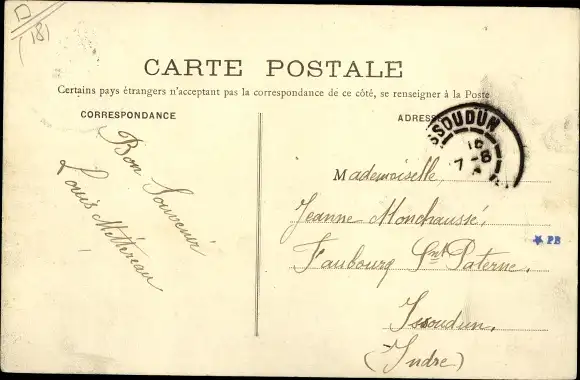 D
(18)
CARTE POSTALE
Certains pays étrangers n'acceptant pas la correspondance de ce côté, se renseigner à la Poste
CORRESPONDANCE
ADRESS
SSOUDUN
16
7-8
Bon Souvenir
Louis Mettéreau
Mademoiselle,
Jeanne Monchaussé,
Faubourg Smt Paterne,
Issoudun,
(Indre)
PB